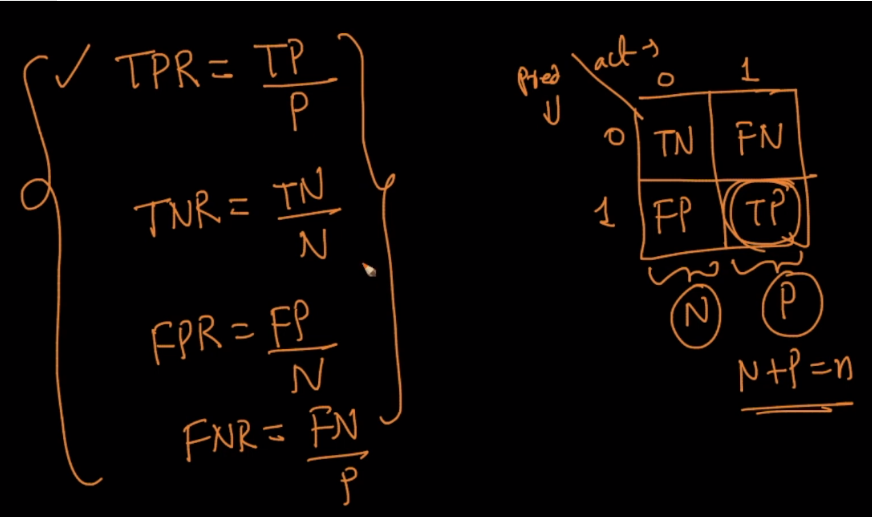 ✓ TPR = TP/P
TNR = TN/N
FPR = FP/N
FNR = FN/P
pred ↓ \ act →
0 1
0 TN FN
1 FP TP
N P
N+P=n